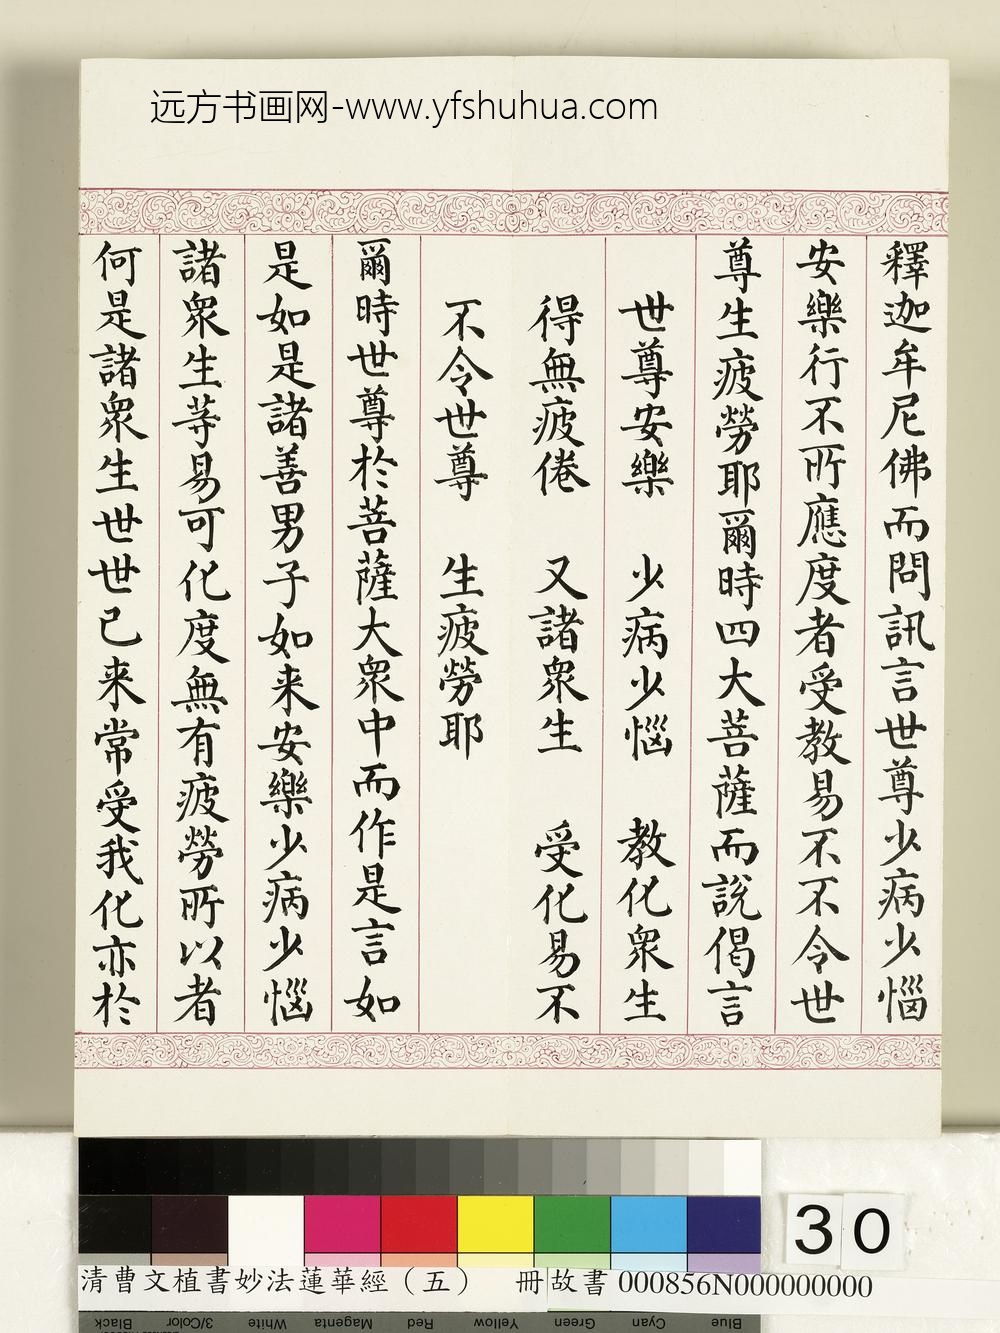 远方书画网-www.yfshuhua.com
釋迦牟尼佛而問訊言世尊少病少惱
安樂行不所應度者受教易不不令世
尊生疲勞耶爾時四大菩薩而說偈言
世尊安樂 少病少惱 教化衆生
得無疲倦 又諸衆生 受化易不
不令世尊 生疲勞耶
爾時世尊於菩薩大衆中而作是言如
是如是諸善男子如来安樂少病少惱
諸衆生等易可化度無有疲勞所以者
何是諸衆生世世已来常受我化亦於
30
清曹文植書妙法蓮華經（五） 冊 故書000856N000000000
Black 3/Color White Magenta Red Yellow Green Cyan Blue